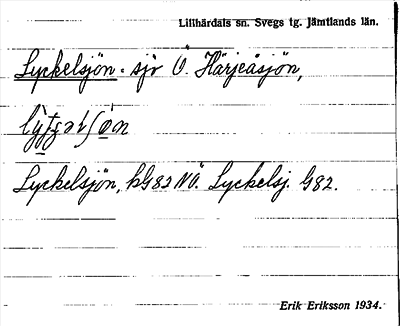 Lillhärdals sn. Svegs tg. Jämtlands län.
Lyckelsjön - sjö Ö. Härjeåsjön,
Lyckelsjön, kG82 NÖ. Lyckelsj. G82.
Erik Eriksson 1934.